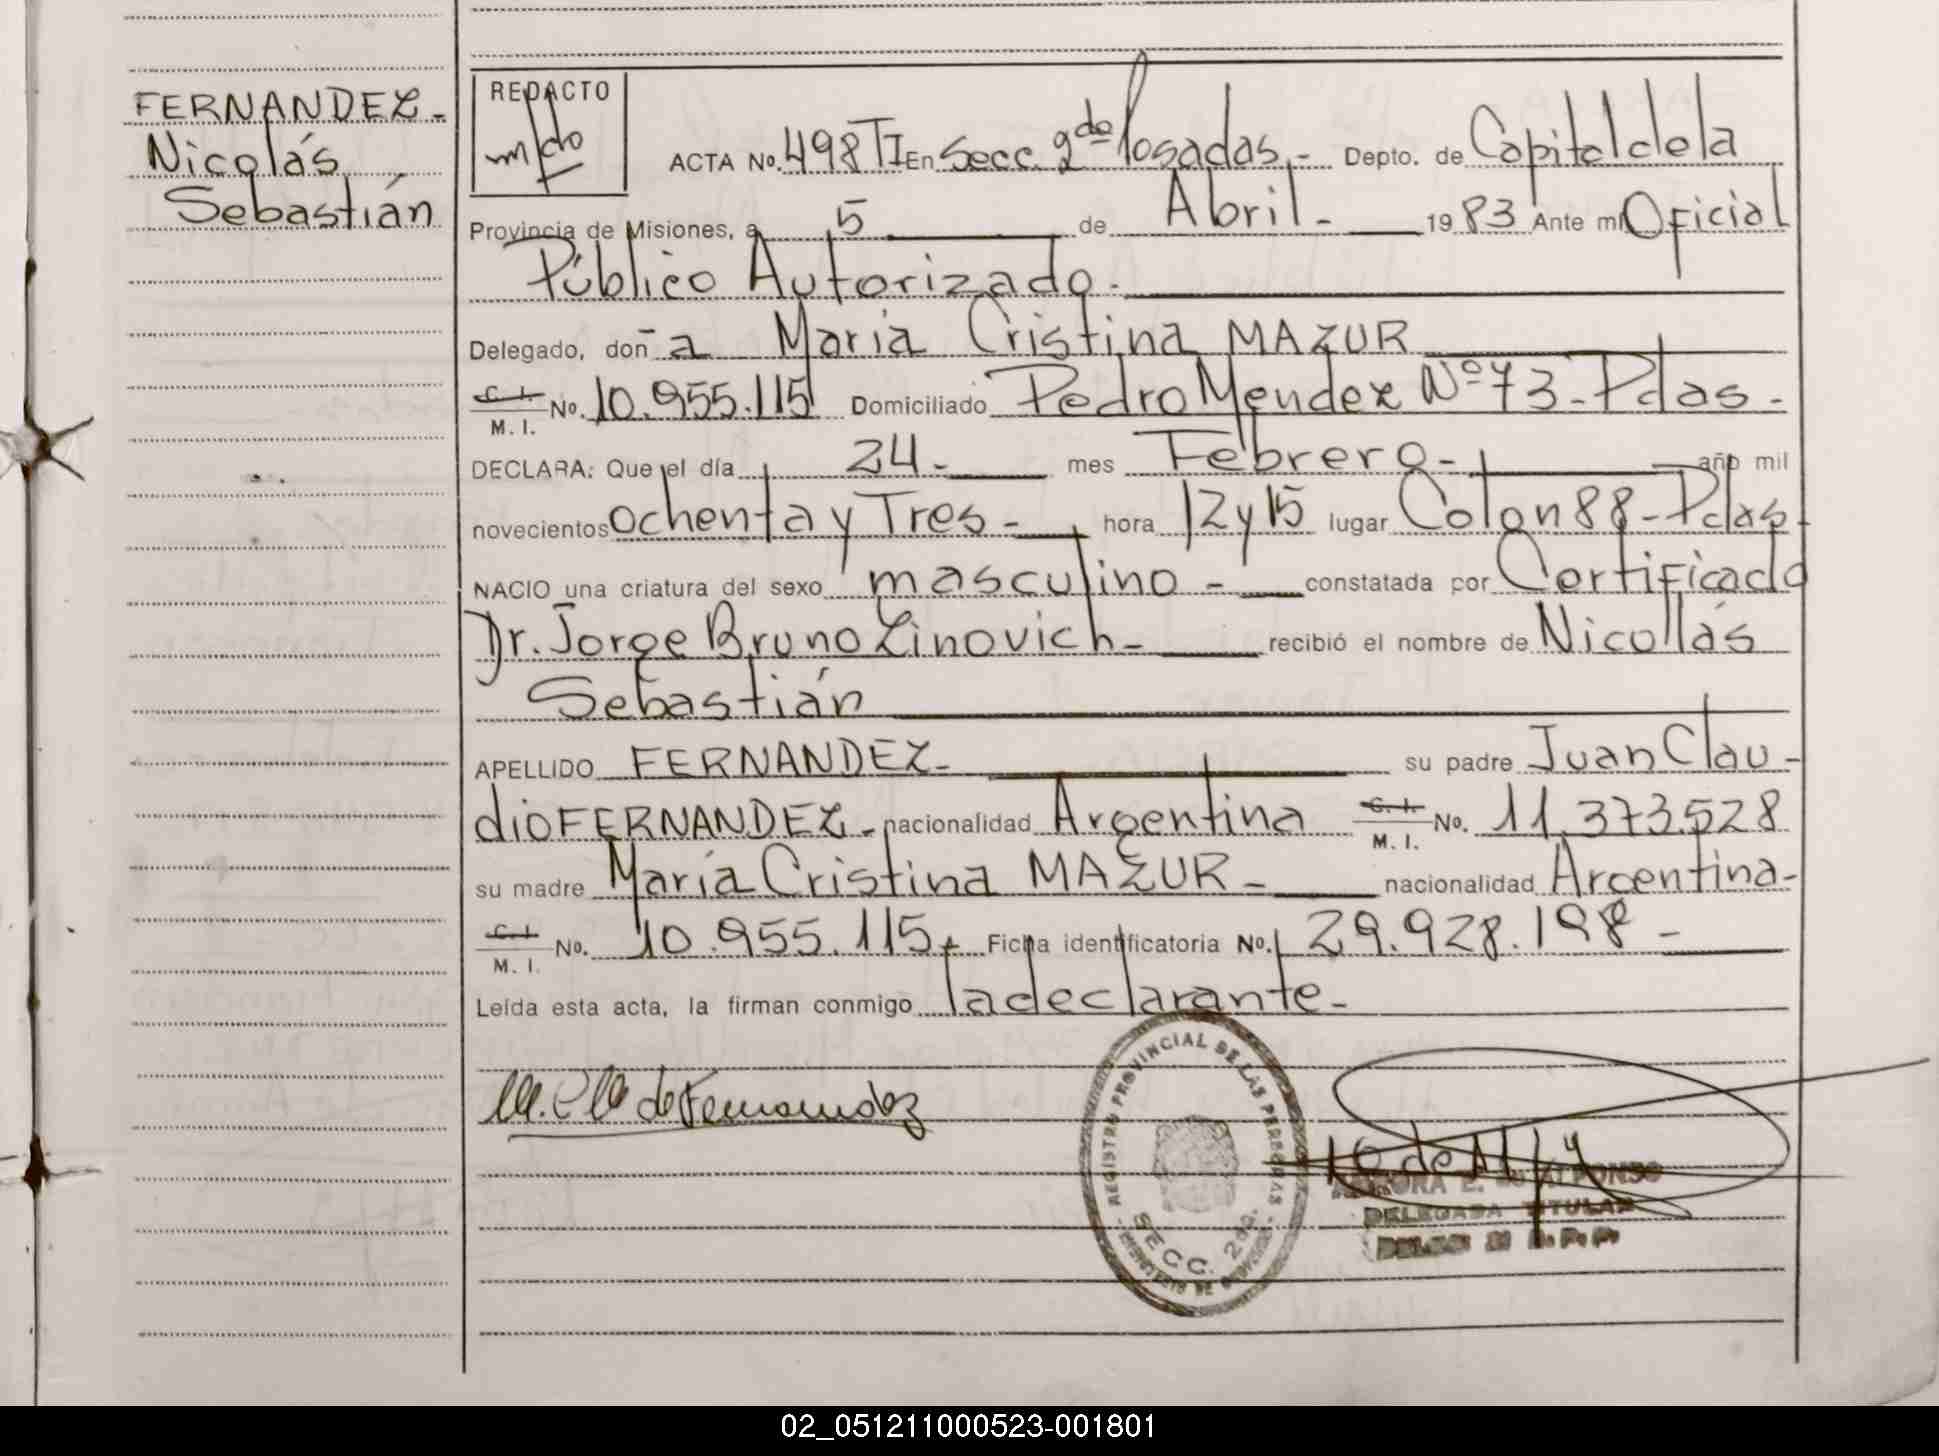 FERNANDEZ-
Nicolás
Sebastián
REDACTO
ACTA No. 498 TI En Secc. 2da Posadas.- Depto. de Capital de la
Provincia de Misiones, a 5 de Abril - 1983 Ante mi Oficial
Público Autorizado.-
Delegado, don a María Cristina MAZUR
C. I. M. I. No. 10.955.115 Domiciliado Pedro Mendez Nº 73 - Pdas.-
DECLARA: Que el día 24 - mes Febrero - año mil
novecientos ochenta y Tres - hora 12 y 15 lugar Colon 88 - Pdas.
NACIO una criatura del sexo masculino - constatada por Certificado
Dr. Jorge Bruno Zinovich - recibió el nombre de Nicollás
Sebastián
APELLIDO FERNANDEZ - su padre Juan Clau-
dio FERNANDEZ - nacionalidad Argentina C. I. M. I. No. 11.373.528
su madre María Cristina MAZUR - nacionalidad Argentina-
C. I. M. I. No. 10.955.115 - Ficha identificatoria No. 29.928.198 -
Leída esta acta, la firman conmigo la declarante-
de Fernandez
REGISTRO PROVINCIAL DE LAS PERSONAS
SECC. 2da.
DELEGADA TITULAR
02_051211000523-001801